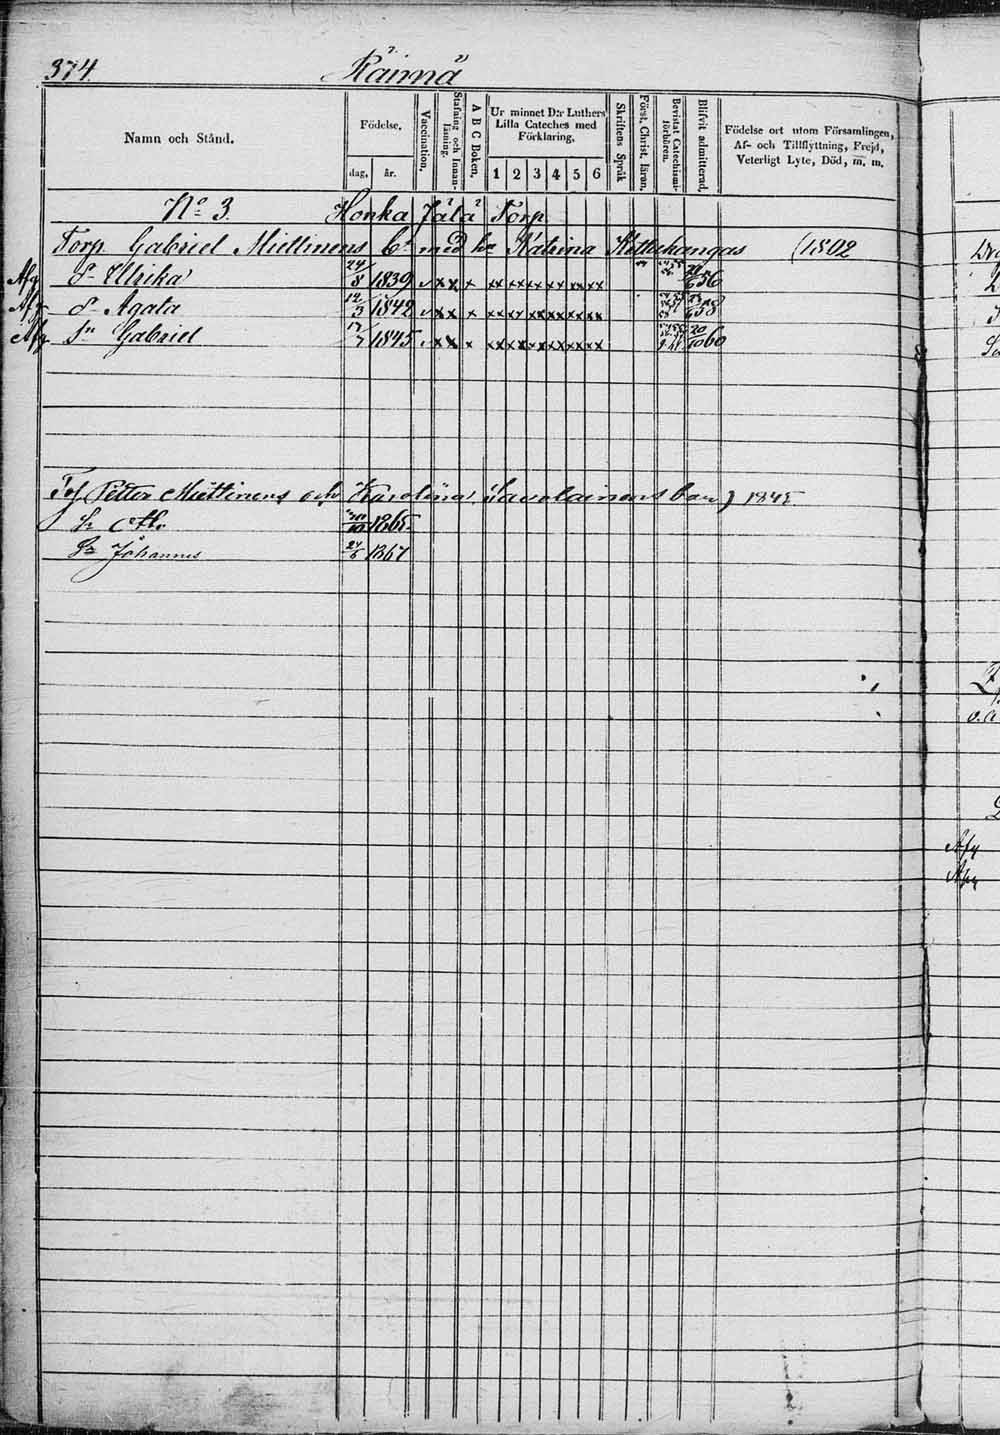 374.
Räimä
Namn och Stånd.
Födelse.
dag.
år.
Vaccination.
Stafning och Innanläsning.
A B C Boken.
Ur minnet D:r Luthers Lilla Cateches med Förklaring.
1 2 3 4 5 6
Skriftens Språk
Först. Christ. läran.
Bevistat Catechismiförhören.
Blifvit admitterad.
Födelse ort utom Församlingen, Af- och Tillflyttning, Frejd, Veterligt Lyte, Död, m. m.
No 3. Honka Jälä Torp
Torp Gabriel Miettinens br med h. Katrina Kettukangas (1802
Afg dr Ulrika 24/8 1839 20/6 56
Afg dr Agata 12/3 1842 58
Afg Sn Gabriel 17/7 1845 20/10 60
Petter Miettinens och Karolina Savolainens barn) 1845
1865
Sn Johannes 24/6 1867
Afg
Afg